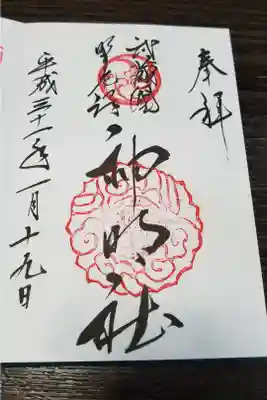 奉拝
武蔵國
神明社
平成三十一年一月十九日